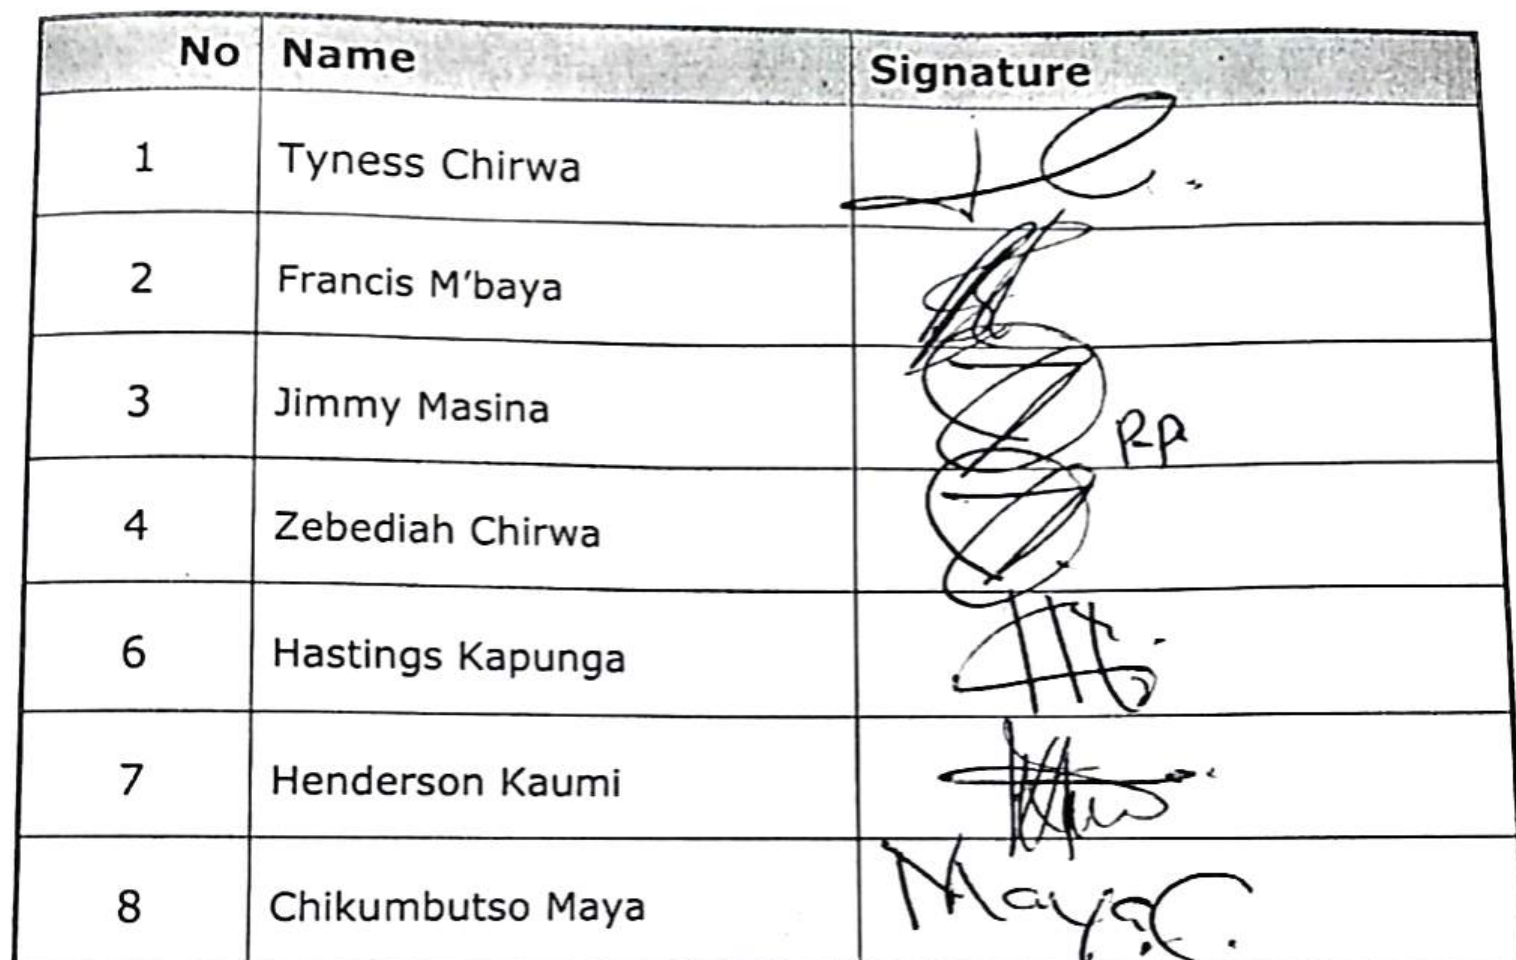 No Name Signature
1 Tyness Chirwa
2 Francis M'baya
3 Jimmy Masina P.P
4 Zebediah Chirwa
6 Hastings Kapunga
7 Henderson Kaumi
8 Chikumbutso Maya Maya.C.